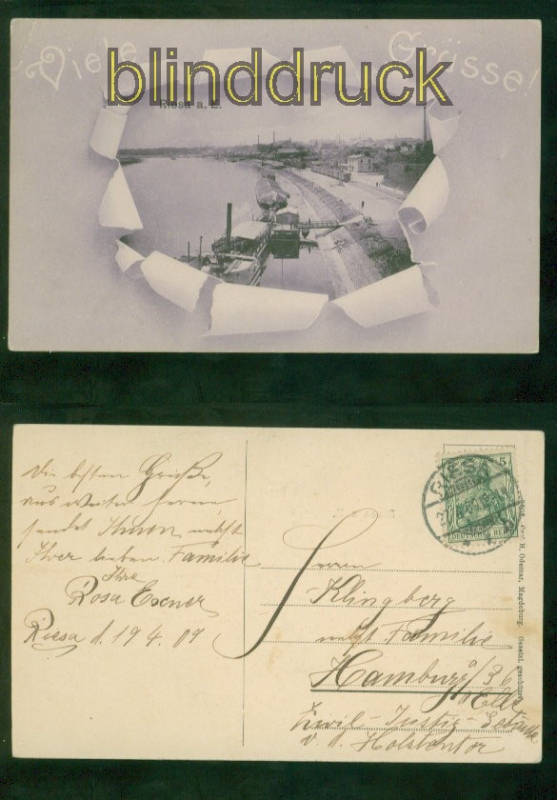 Viele Grüsse!
blinddruck
Riesa a. E.
Die besten Grüße,
aus weiter Ferne
sendet Ihnen nebst
Ihrer lieben Familie
Ihre
Rosa Exner
Riesa d. 19 4. 09
5
Herrn
Klingberg
nebst Familie
Hamburg/36
Civil-Justiz-Gebäude
v. d. Holstentor
H. Odemar, Magdeburg. Gesetzl. geschützt.